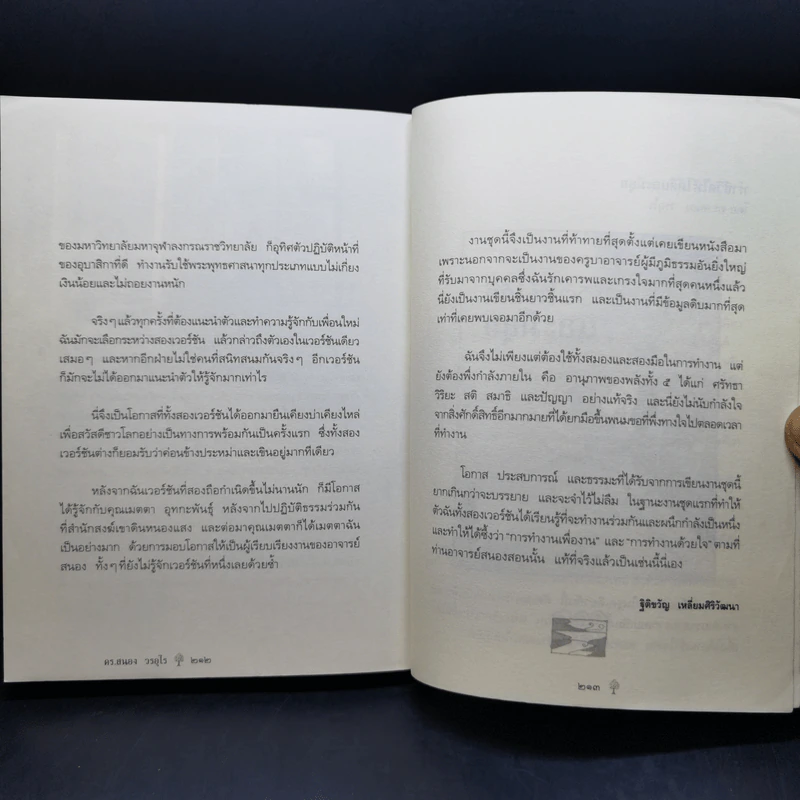 ของมหาวิทยาลัยมหาจุฬาลงกรณราชวิทยาลัย ก็อุทิศตัวปฏิบัติหน้าที่
ของอุบาสิกาที่ดี ทำงานรับใช้พระพุทธศาสนาทุกประเภทแบบไม่เกี่ยง
เงินน้อยและไม่ถอยงานหนัก
จริงๆ แล้วทุกครั้งที่ต้องแนะนำตัวและทำความรู้จักกับเพื่อนใหม่
ฉันมักจะเลือกระหว่างสองเวอร์ชัน แล้วกล่าวถึงตัวเองในเวอร์ชันเดียว
เสมอๆ และหากอีกฝ่ายไม่ใช่คนที่สนิทสนมกันจริงๆ อีกเวอร์ชัน
ก็มักจะไม่ได้ออกมาแนะนำตัวให้รู้จักมากเท่าไร
นี่จึงเป็นโอกาสที่ทั้งสองเวอร์ชันได้ออกมายืนเคียงบ่าเคียงไหล่
เพื่อสวัสดีชาวโลกอย่างเป็นทางการพร้อมกันเป็นครั้งแรก ซึ่งทั้งสอง
เวอร์ชันต่างก็ยอมรับว่าค่อนข้างประหม่าและเขินอยู่มากทีเดียว
หลังจากฉันเวอร์ชันที่สองถือกำเนิดขึ้นไม่นานนัก ก็มีโอกาส
ได้รู้จักกับคุณเมตตา อุทกะพันธุ์ หลังจากไปปฏิบัติธรรมร่วมกัน
ที่สำนักสงฆ์เขาดินหนองแสง และต่อมาคุณเมตตาก็ได้เมตตาฉัน
เป็นอย่างมาก ด้วยการมอบโอกาสให้เป็นผู้เรียบเรียงงานของอาจารย์
สนอง ทั้งๆ ที่ยังไม่รู้จักเวอร์ชันที่หนึ่งเลยด้วยซ้ำ
ดร.สนอง วรอุไร ๒๑๒
งานชุดนี้จึงเป็นงานที่ท้าทายที่สุดตั้งแต่เคยเขียนหนังสือมา
เพราะนอกจากจะเป็นงานของครูบาอาจารย์ผู้มีภูมิธรรมอันยิ่งใหญ่
ที่รับมาจากบุคคลซึ่งฉันรักเคารพและเกรงใจมากที่สุดคนหนึ่งแล้ว
นี่ยังเป็นงานเขียนชิ้นยาวชิ้นแรก และเป็นงานที่มีข้อมูลดิบมากที่สุด
เท่าที่เคยพบเจอมาอีกด้วย
ฉันจึงไม่เพียงแต่ต้องใช้ทั้งสมองและสองมือในการทำงาน แต่
ยังต้องพึ่งกำลังภายใน คือ อานุภาพของพลังทั้ง ๕ ได้แก่ ศรัทธา
วิริยะ สติ สมาธิ และปัญญา อย่างแท้จริง และนี่ยังไม่นับกำลังใจ
จากสิ่งศักดิ์สิทธิ์อีกมากมายที่ได้ยกมือขึ้นพนมขอที่พึ่งทางใจไปตลอดเวลา
ที่ทำงาน
โอกาส ประสบการณ์ และธรรมะที่ได้รับจากการเขียนงานชุดนี้
ยากเกินกว่าจะบรรยาย และจะจำไว้ไม่ลืม ในฐานะงานชุดแรกที่ทำให้
ตัวฉันทั้งสองเวอร์ชันได้เรียนรู้ที่จะทำงานร่วมกันและผนึกกำลังเป็นหนึ่ง
และทำให้ได้ซึ้งว่า “การทำงานเพื่องาน” และ “การทำงานด้วยใจ” ตามที่
ท่านอาจารย์สนองสอนนั้น แท้ที่จริงแล้วเป็นเช่นนี้นี่เอง
ฐิติขวัญ เหลี่ยมศิริวัฒนา
๒๑๓